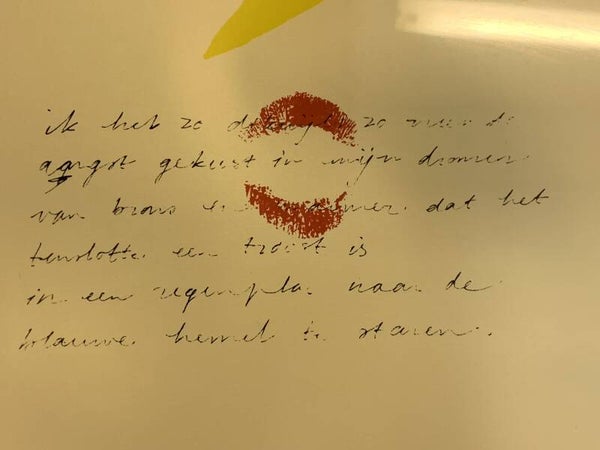 ik heb zo dikwijls zo zeer de
angst gekust in mijn dromen
van brons en marmer dat het
tenslotte een troost is
in een regenplas naar de
blauwe hemel te staren.